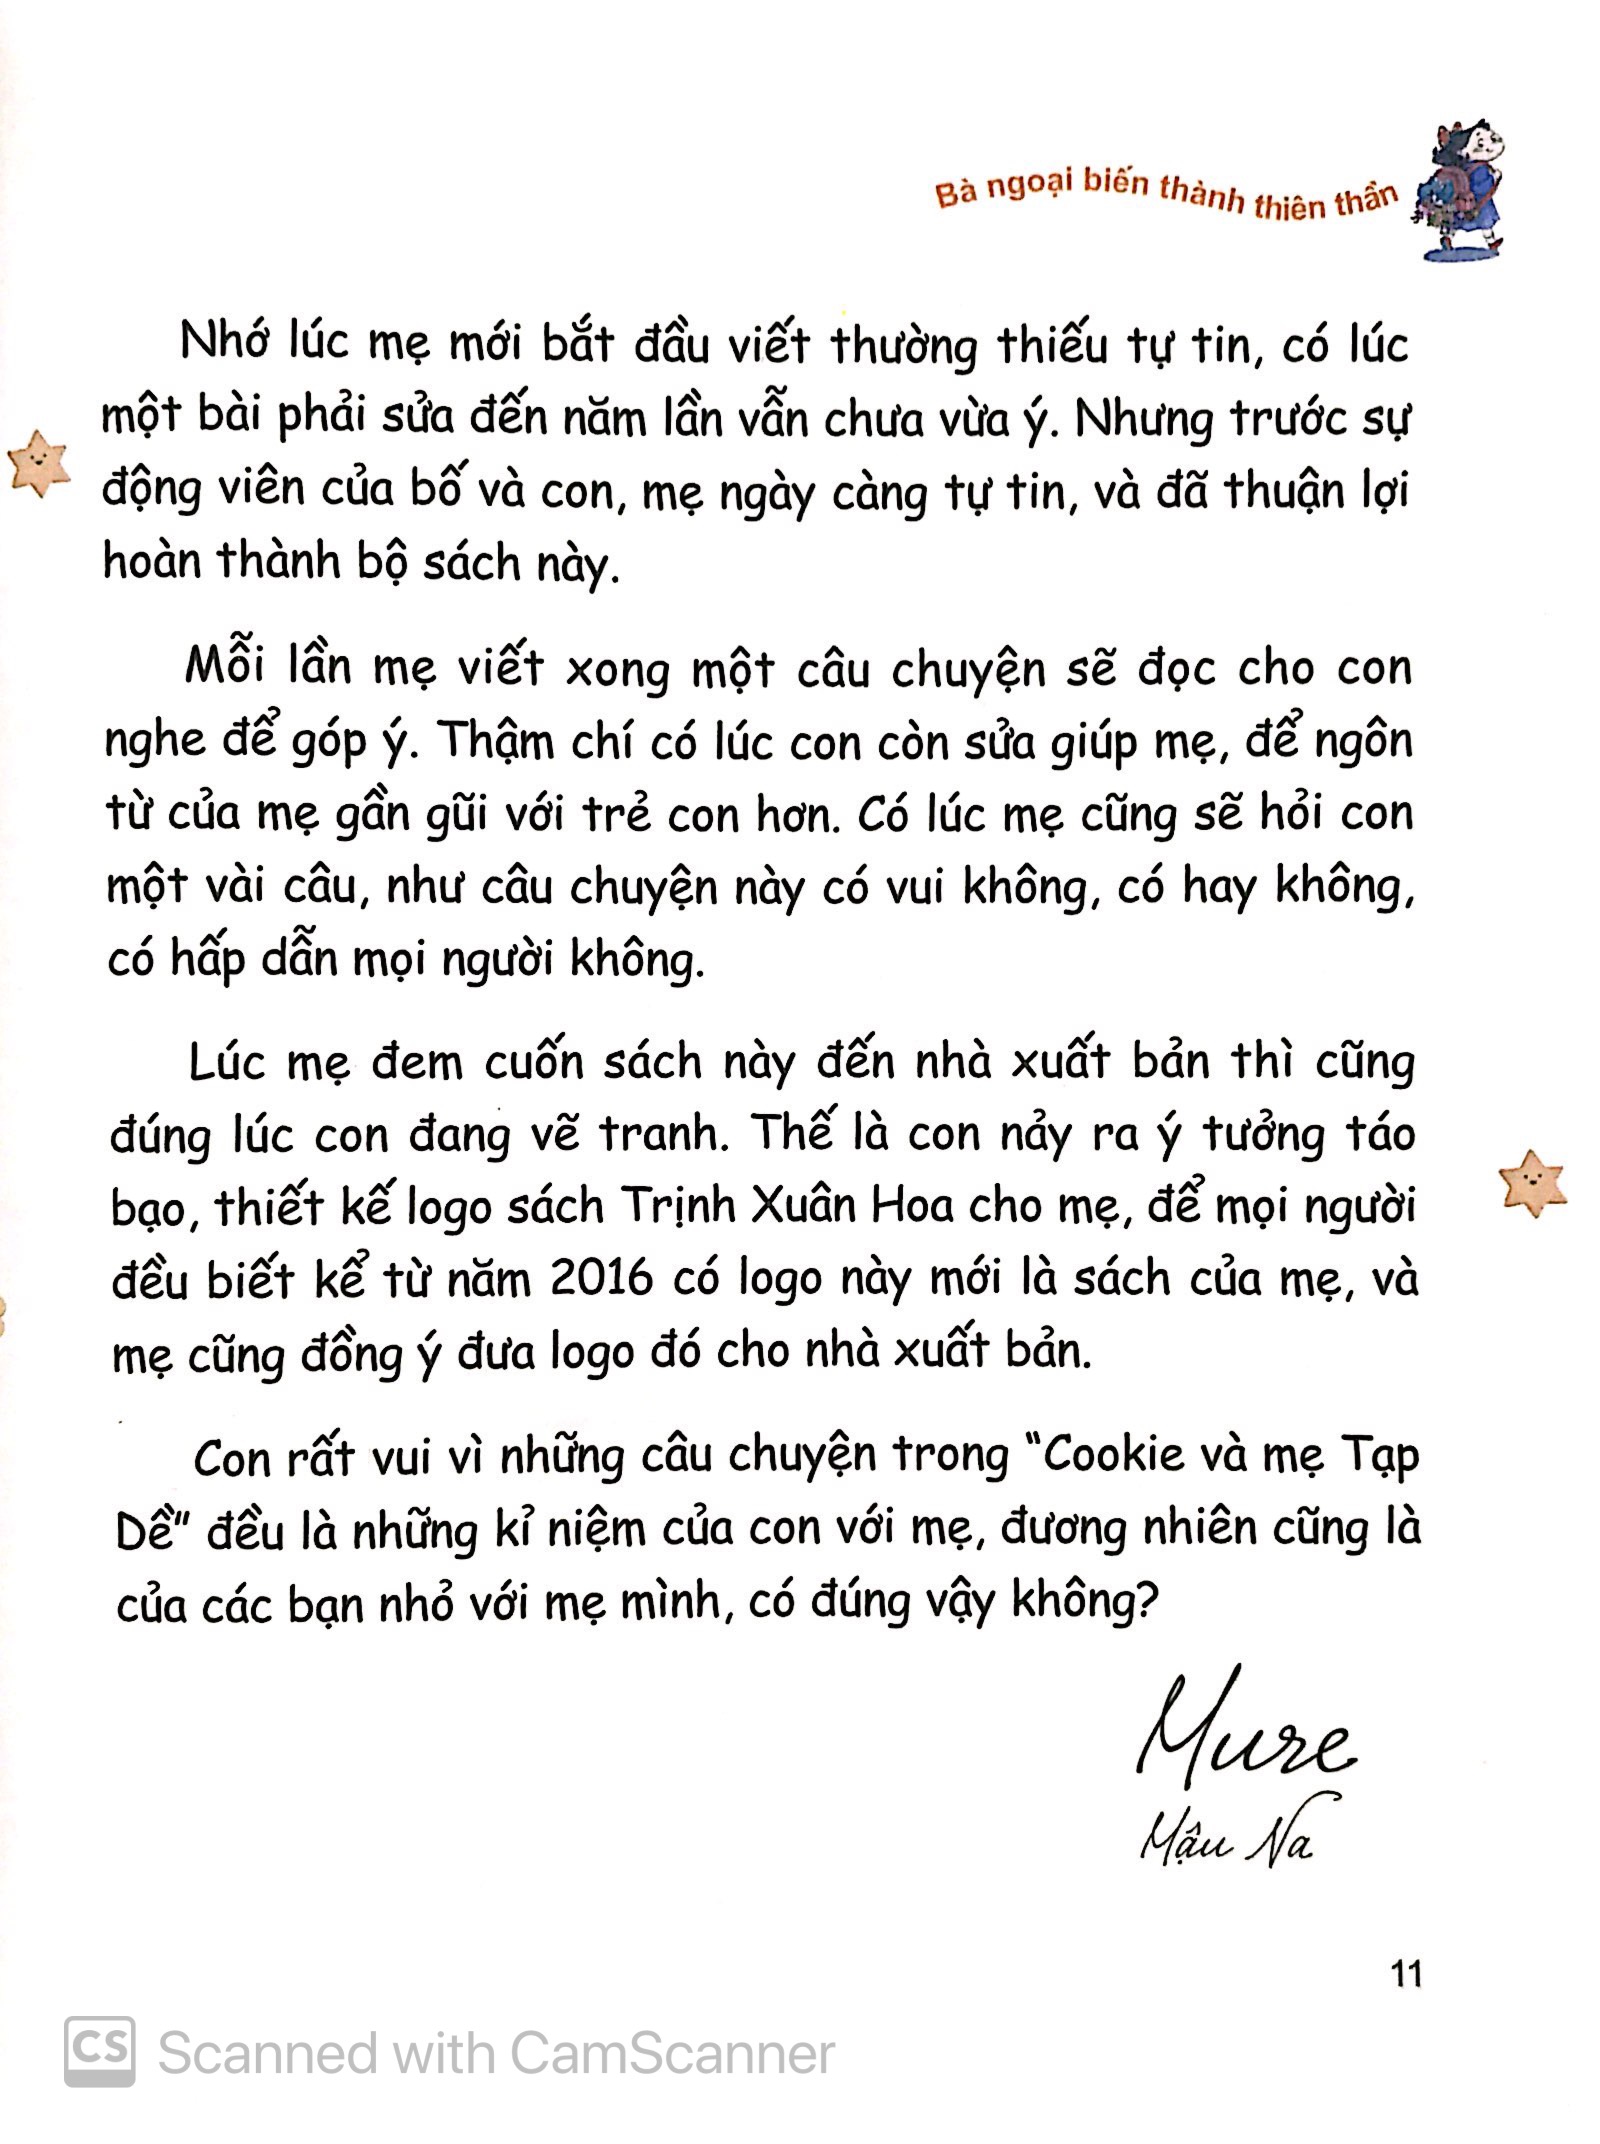 Bà ngoại biến thành thiên thần
Nhớ lúc mẹ mới bắt đầu viết thường thiếu tự tin, có lúc
một bài phải sửa đến năm lần vẫn chưa vừa ý. Nhưng trước sự
động viên của bố và con, mẹ ngày càng tự tin, và đã thuận lợi
hoàn thành bộ sách này.
Mỗi lần mẹ viết xong một câu chuyện sẽ đọc cho con
nghe để góp ý. Thậm chí có lúc con còn sửa giúp mẹ, để ngôn
từ của mẹ gần gũi với trẻ con hơn. Có lúc mẹ cũng sẽ hỏi con
một vài câu, như câu chuyện này có vui không, có hay không,
có hấp dẫn mọi người không.
Lúc mẹ đem cuốn sách này đến nhà xuất bản thì cũng
đúng lúc con đang vẽ tranh. Thế là con nảy ra ý tưởng táo
bạo, thiết kế logo sách Trịnh Xuân Hoa cho mẹ, để mọi người
đều biết kể từ năm 2016 có logo này mới là sách của mẹ, và
mẹ cũng đồng ý đưa logo đó cho nhà xuất bản.
Con rất vui vì những câu chuyện trong "Cookie và mẹ Tạp
Dề" đều là những kỉ niệm của con với mẹ, đương nhiên cũng là
của các bạn nhỏ với mẹ mình, có đúng vậy không?
Mure
Mậu Na
11
CS Scanned with CamScanner